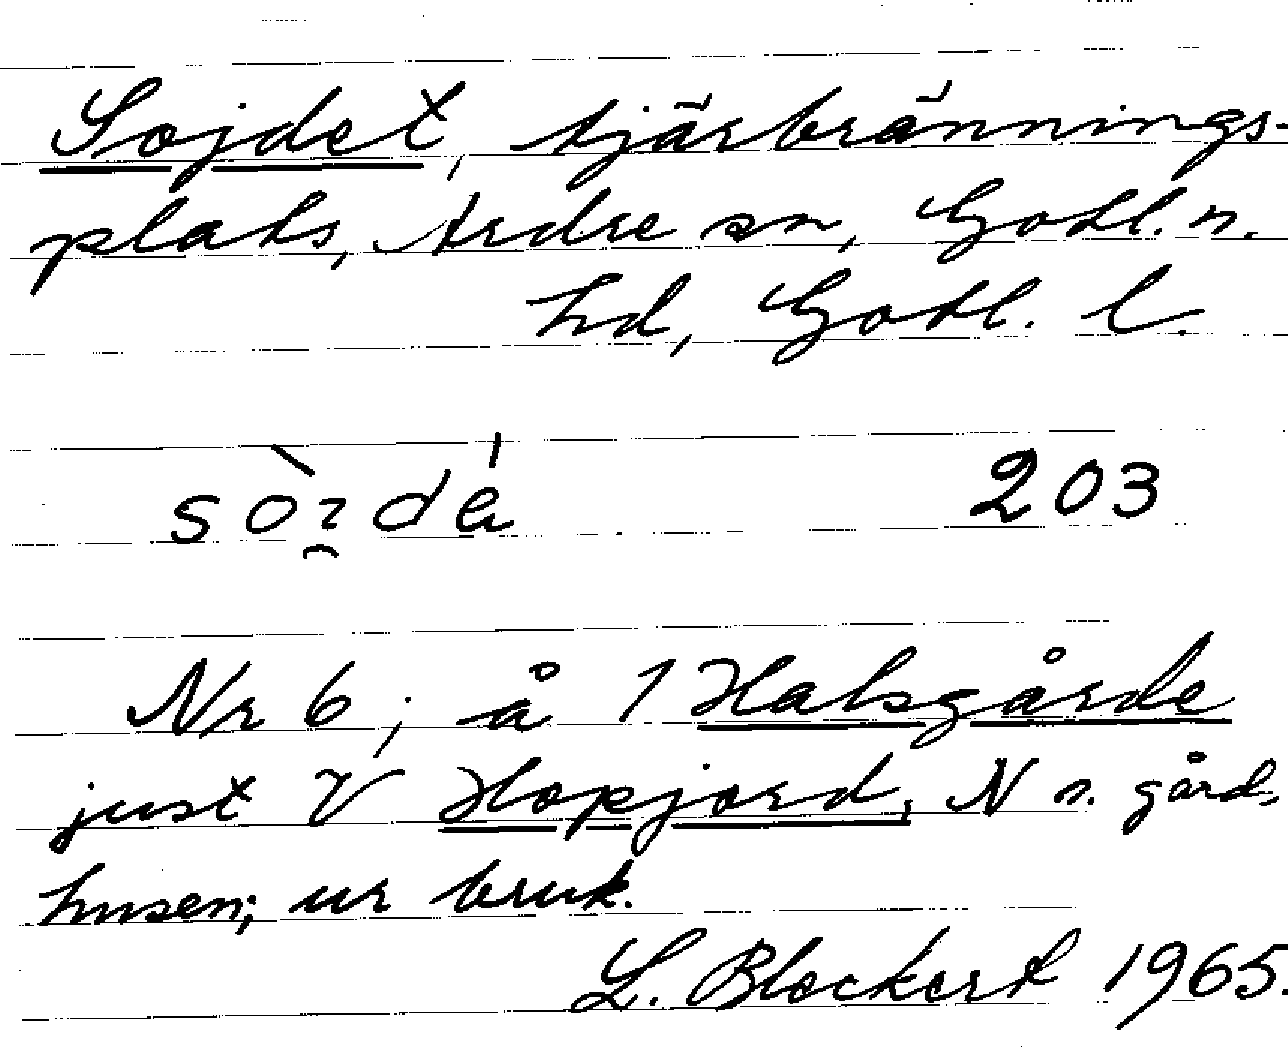 Sojdet, tjärbrännings-
plats, Ardre sn, Gotl. n.
hd, Gotl. l.
203
Nr 6; å 1 Halsgårde
just V Hopjord, N n. gård,
husen; ur bruk.
L. Blockert 1965.